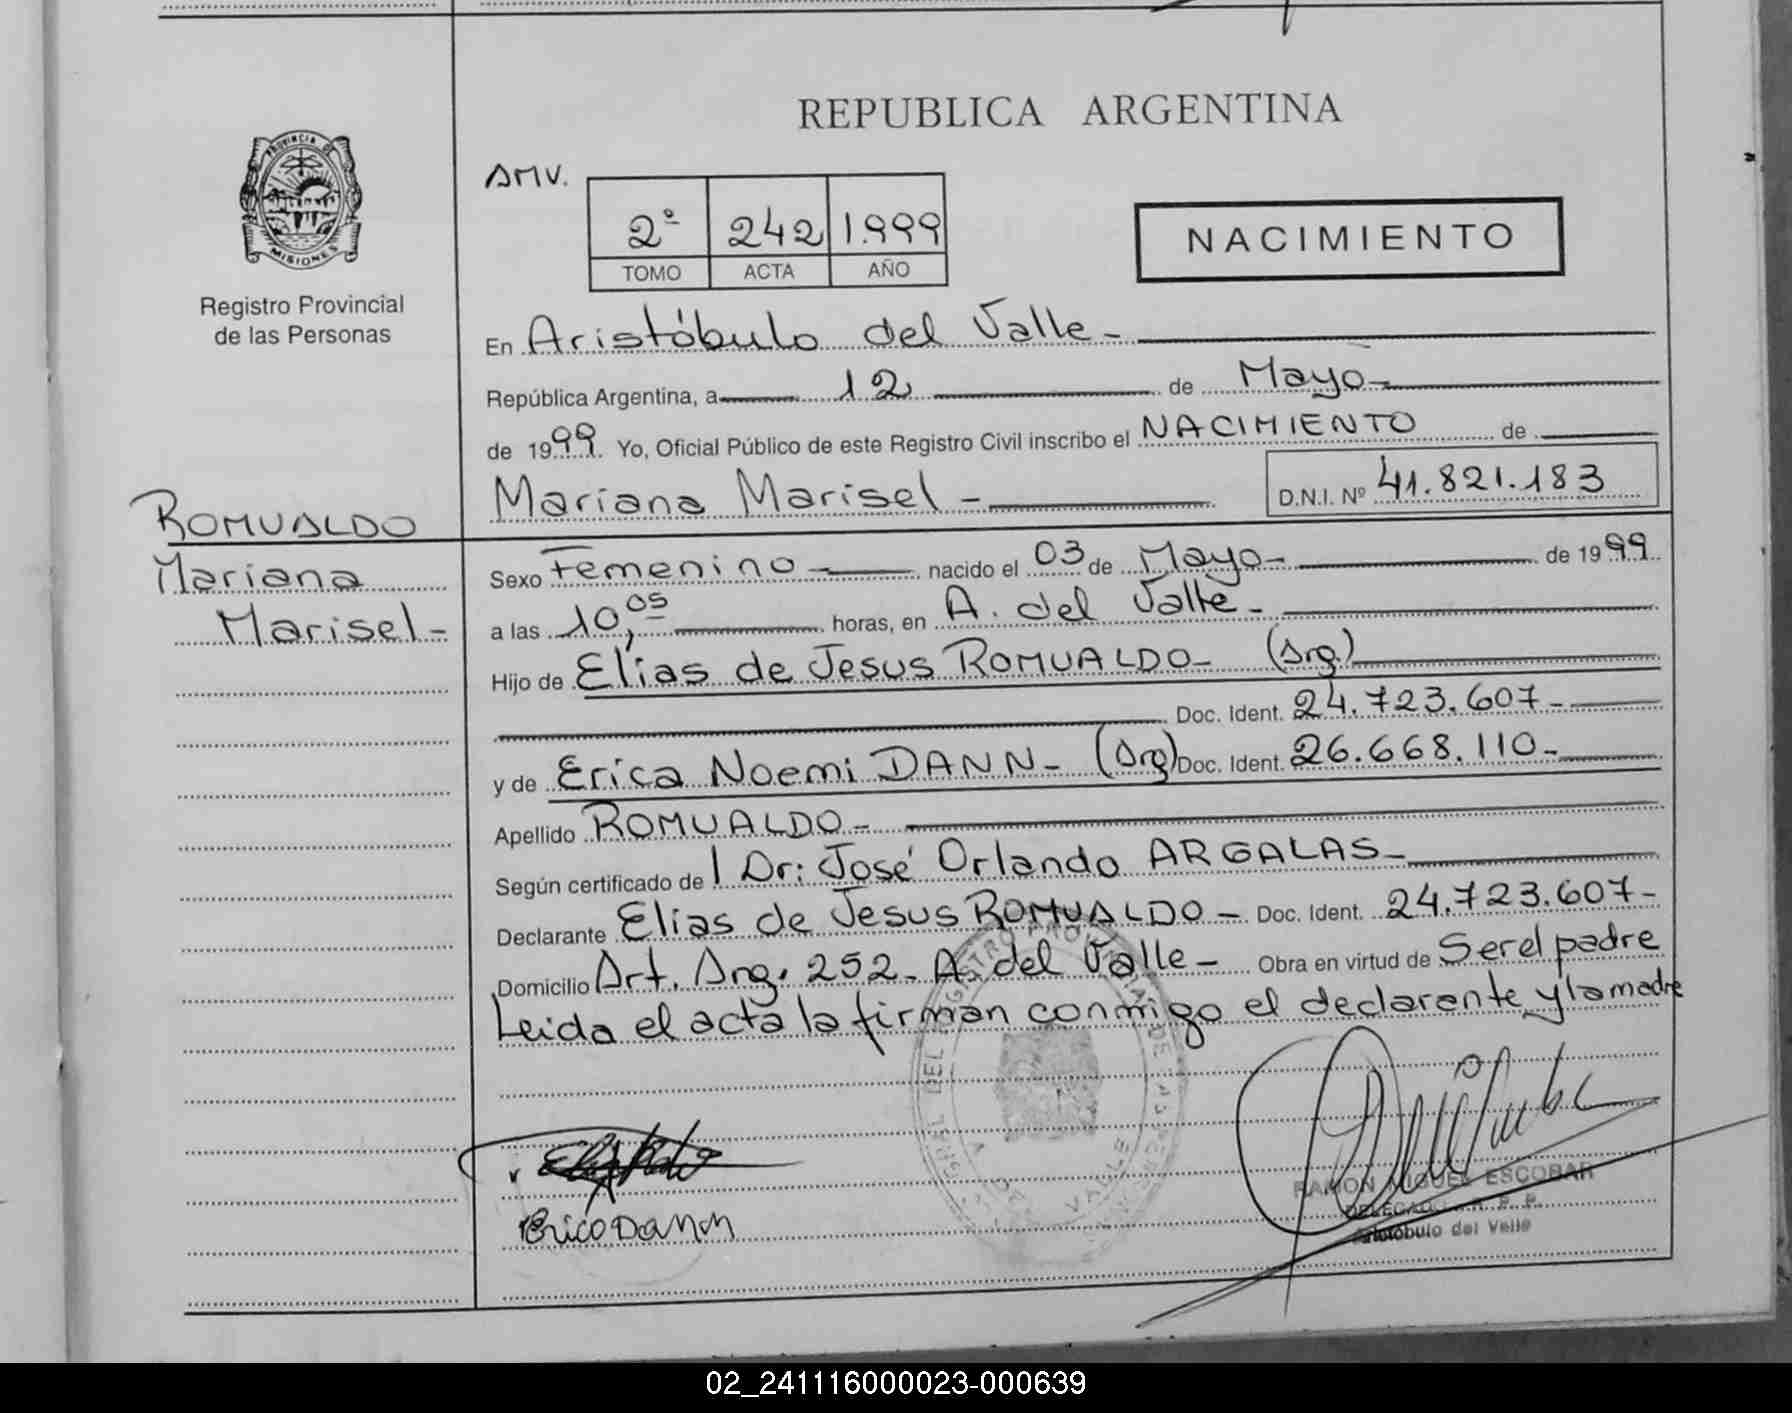 REPUBLICA ARGENTINA
PROVINCIA DE
MISIONES
Registro Provincial
de las Personas
AMV.
2º 242 1.999
TOMO ACTA AÑO
NACIMIENTO
En Aristóbulo del Valle-
República Argentina, a 12 de Mayo-
de 1999. Yo, Oficial Público de este Registro Civil inscribo el NACIMIENTO de
Mariana Marisel - D.N.I. Nº 41.821.183
ROMUALDO
Mariana
Marisel-
Sexo Femenino - nacido el 03 de Mayo- de 1999
a las 10,05 horas, en A. del Valle-
Hijo de Elías de Jesus ROMUALDO- (Arg.)
Doc. Ident. 24.723.607-
y de Erica Noemi DANN- (Arg) Doc. Ident. 26.668.110-
Apellido ROMUALDO-
Según certificado de l Dr: José Orlando ARGALAS-
Declarante Elias de Jesus ROMUALDO- Doc. Ident. 24.723.607-
Domicilio Art. Arg. 252- A. del Valle- Obra en virtud de Ser el padre
Leida el acta la firman conmigo el declarante y la madre
Erica Dann
RAMON MIGUEL ESCOBAR
DELEGADO R. P. P.
Aristóbulo del Valle
02_241116000023-000639